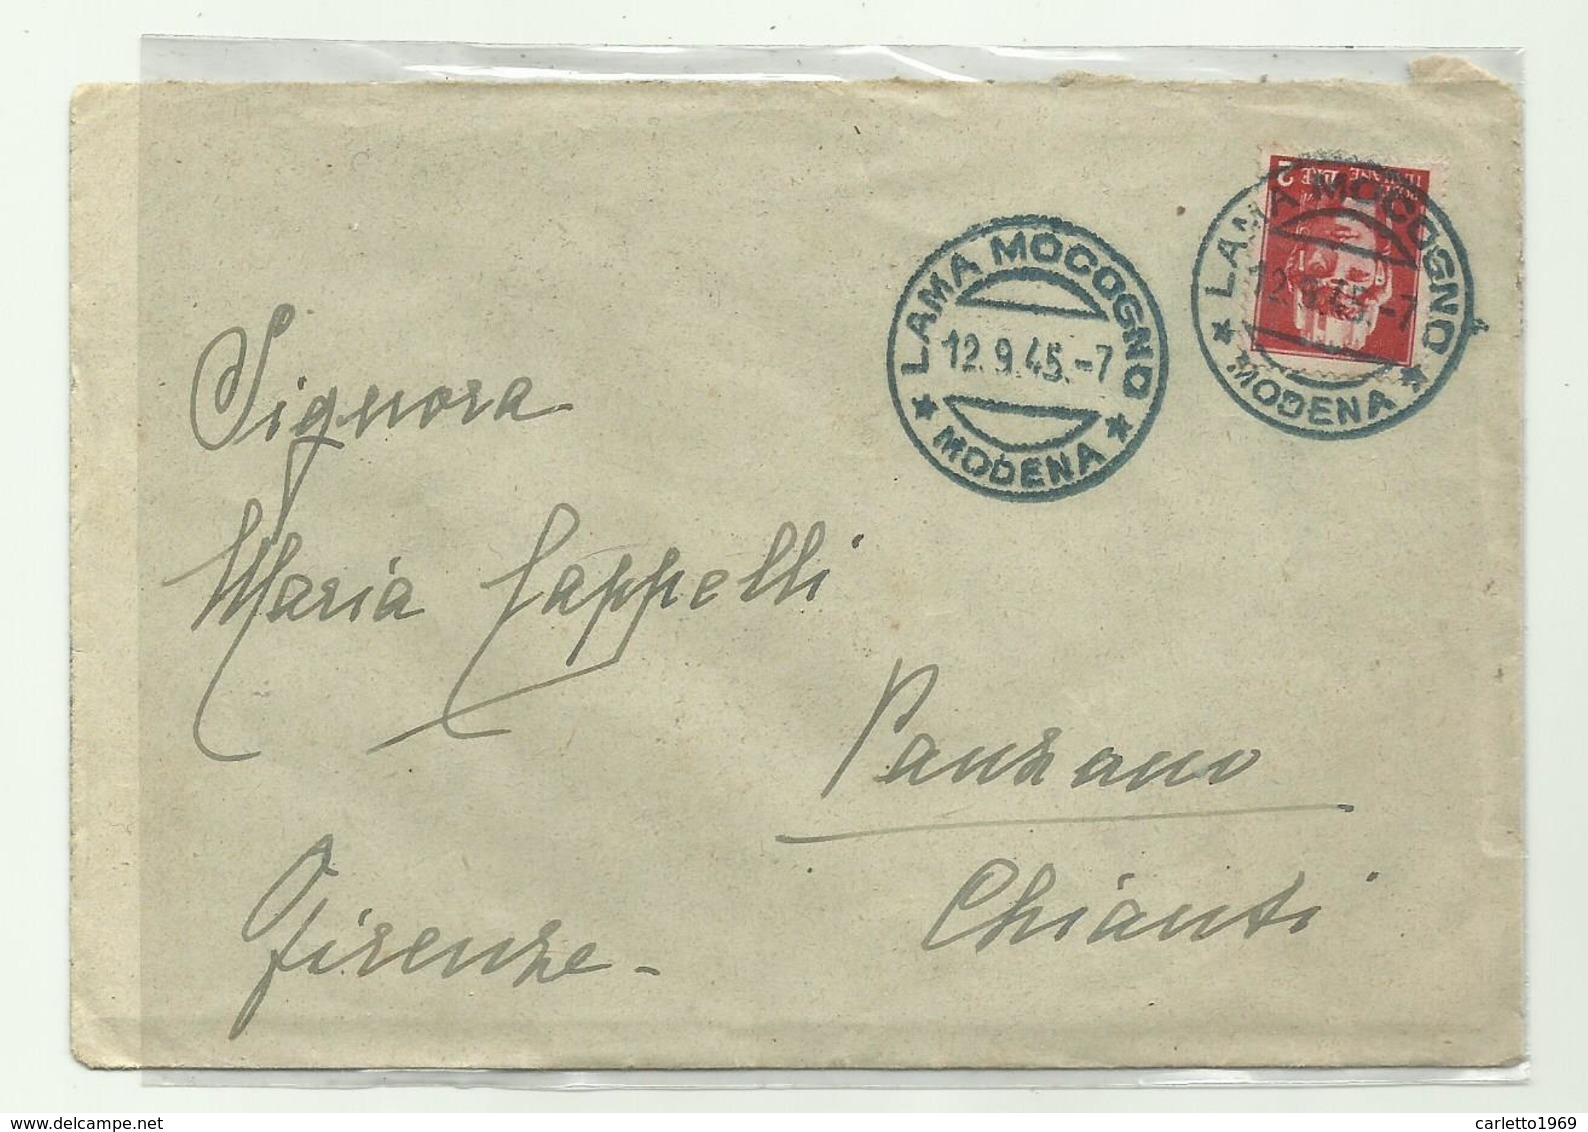 2 LIRE
POSTE ITALIANE
LAMA MOCOGNO
12.9.45.-7
★ MODENA ★
LAMA MOCOGNO
12.9.45.-7
★ MODENA ★
Signora
Maria Cappelli
Panzano
Chianti
Firenze -
www.delcampe.net
carletto1969